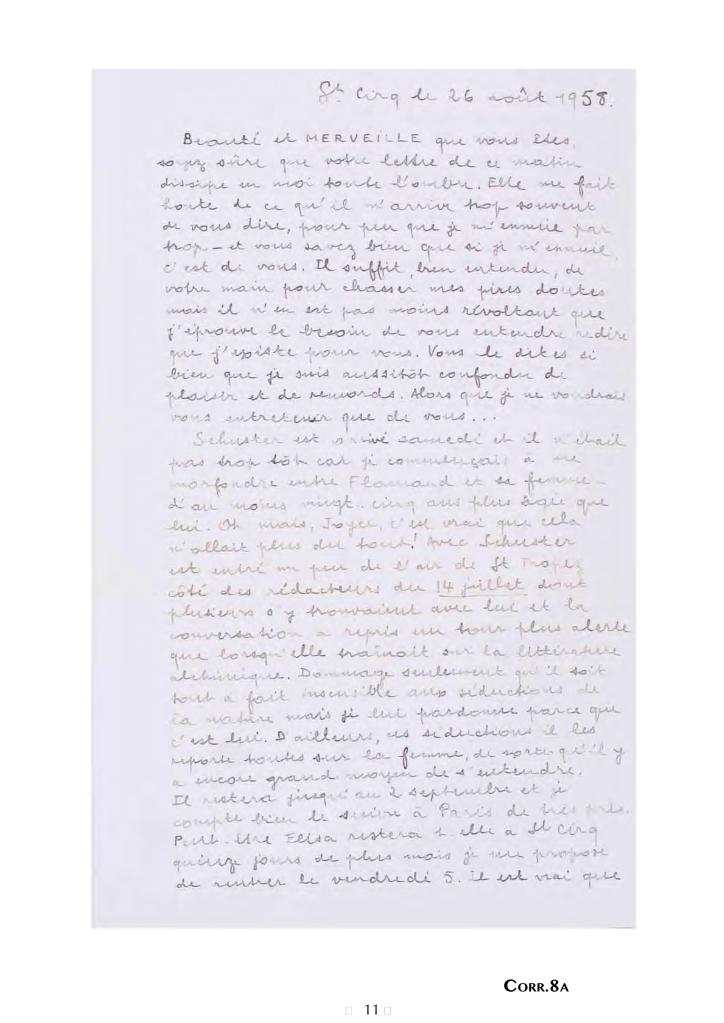 St Cirq le 26 août 1958.
Beauté et MERVEILLE que vous êtes,
soyez sûre que votre lettre de ce matin
dissipe en moi toute l'ombre. Elle me fait
honte de ce qu'il m'arrive trop souvent
de vous dire, pour peu que je m'ennuie par
trop — et vous savez bien que si je m'ennuie,
c'est de vous. Il suffit, bien entendu, de
votre main pour chasser mes pires doutes
mais il n'en est pas moins révoltant que
j'éprouve le besoin de vous entendre redire
que j'existe pour vous. Vous le dites si
bien que je suis aussitôt confondu de
plaisir et de remords. Alors que je ne voudrais
vous entretenir que de vous...
Schuster est arrivé samedi et il n'était
pas trop tôt car je commençais à me
morfondre entre Flamand et sa femme –
d'au moins vingt-cinq ans plus âgée que
lui. Oh mais, Joyce, c'est vrai que cela
n'allait plus du tout! Avec Schuster
est entré un peu de l'air de St Tropez
côté des rédacteurs du 14 juillet dont
plusieurs s'y trouvaient avec lui et la
conversation a repris un tour plus alerte
que lorsqu'elle traînait sur la littérature
alchimique. Dommage seulement qu'il soit
tout à fait insensible aux séductions de
la nature mais je lui pardonne parce que
c'est lui. D'ailleurs, ces séductions il les
reporte toutes sur la femme, de sorte qu'il y
a encore grand moyen de s'entendre.
Il restera jusqu'au 2 septembre et je
compte bien le suivre à Paris de très près.
Peut-être Elisa restera-t-elle à St Cirq
quinze jours de plus mais je me propose
de rentrer le vendredi 5. Il est vrai que
CORR.8A
11